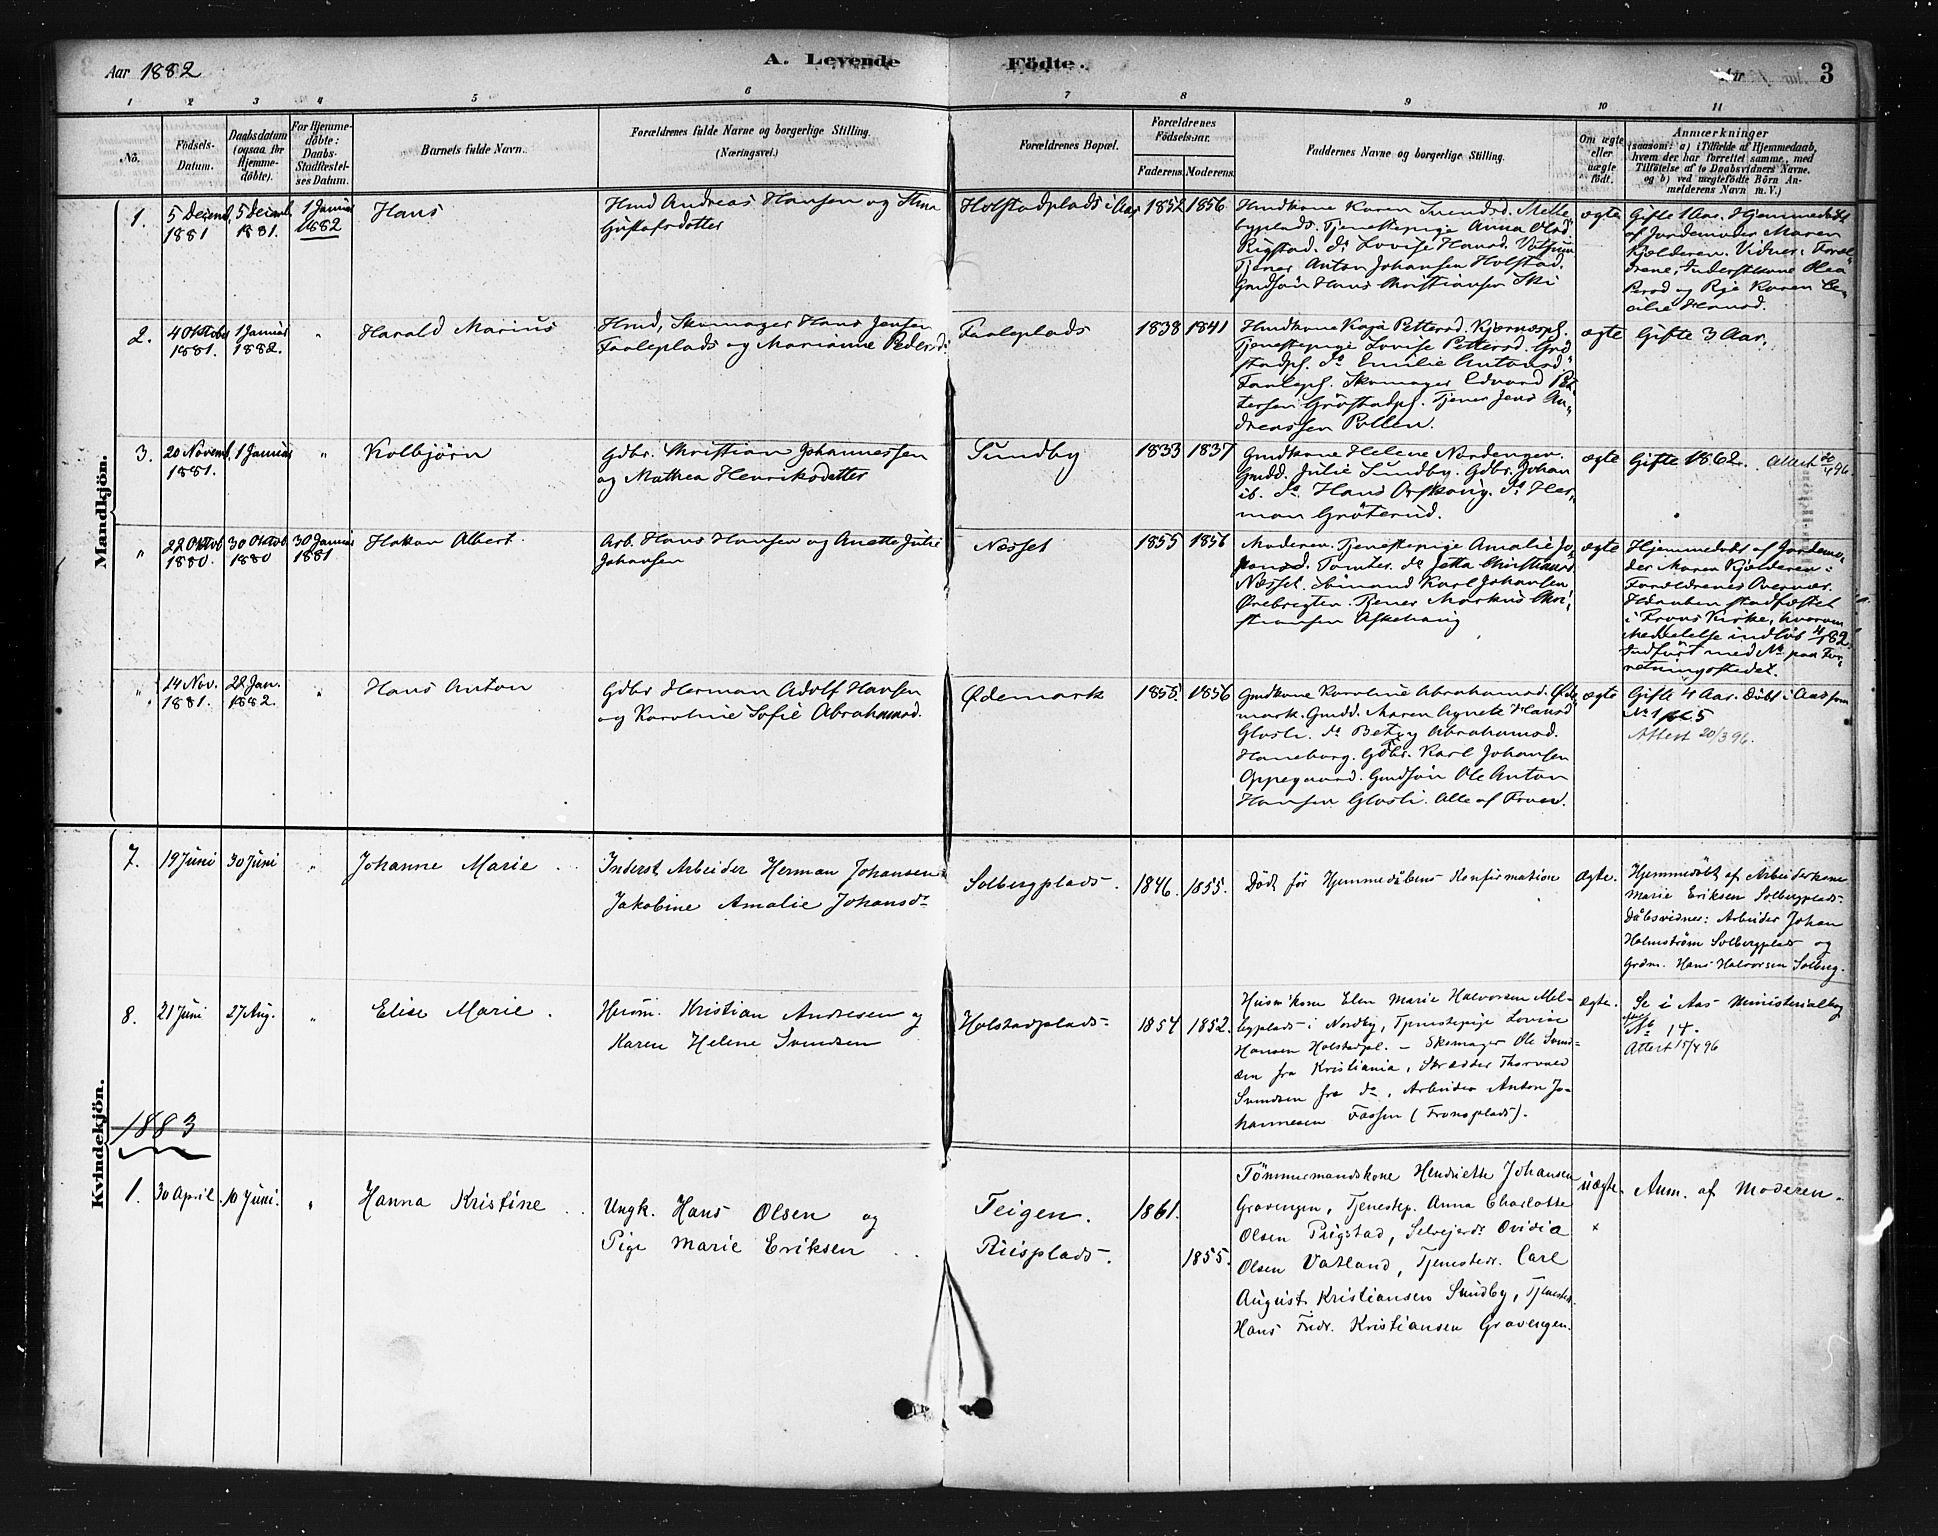 Aar 1882
A. Levende Födte.
Aar
3
1 2 3 4 5 6 7 8 9 10 11
No.
Födsels-
Datum.
Daabsdatum
(ogsaa for
Hjemme-
döbte).
For Hjemme-
döbte:
Daabs-
Stadfæstel-
ses Datum.
Barnets fulde Navn.
Forældrenes fulde Navne og borgerlige Stilling.
(Næringsvei.)
Forældrenes Bopæl.
Forældrenes
Födselsaar.
Faderens. Moderens.
Faddernes Navne og borgerlige Stilling.
Om ægte
eller
uægte
födt.
Anmærkninger
(saasom: a) i Tilfælde af Hjemmedaab,
hvem der har forrettet samme, med
Tilföielse af to Daabsvidners Navne.
og b) ved uægtefödte Börn An-
melderens Navn m. V.)
Mandkjön.
1.
5 Decemb.
1881
5 Decemb.
1881.
1 Januar
1882
Hans
Hmd Andreas Hansen og Stina
Gustafsdatter
Holstadplads i Aas
1852
1856
Hmdkone Karen Svendsd. Melle-
byplads. Tjenestepige Anna Olsd.
Rigstad. do Lovise Hansd.
Tjener Anton Johansen Holstad.
Gmdsön Hans Christiansen Ski
ægte
Gifte 1 Aar. Hjemmedöbt
af Jordemoder Maren
Kjolderen. Vidner: Foræl-
drene, Inderstkone Olea
Persd og Pige Karen Ce-
cilie Hansd.
2.
4 Oktober
1881.
1 Januar
1882.
"
Harald Marius
Hmd, Skomager Hans Jensen
Faaleplads og Marianne Pedersd.
Faaleplads
1838
1841
Hmdkone Kaja Pettersd. Kjærnespl.
Tjenestepige Lovise Pettersd. Grö-
stadpl. do Emilie Antonsd.
Faalepl. Skomager Edvard Pet-
tersen Gröstadpl. Tjener Jens An-
dreassen Pollen.
ægte
Gifte 3 Aar.
3.
20 Novemb.
1881.
1 Januar
"
Kolbjörn
Gdbr. Christian Johannessen
og Mathea Henriksdatter
Sundby
1833
1837
Gmdkone Helene Nordengen.
Gmdd. Julie Sundby. Gdbr. Johan
ib. do Hans Askoug. do Her-
man Gröterud.
ægte
Gifte 1862. Attest 20/4 96.
"
22 Oktob.
1880.
30 Oktob.
1880
30 Januar
1881
Hakon Albert.
Arb. Hans Hansen og Anette Julie
Johansen
Næsset
1855
1856
Moderen. Tjenestepige Amalie Jo-
hansd. Tomter. do Jetta Christiansd.
Næsset. Sömand Karl Johansen
Ørebrigten. Tjener Markus Chri-
stiansen Askehaug
ægte
Hjemmedöbt af Jordemo-
der Maren Kjolderen.
Forældrenes Overvær.
Hdaaben stadfæstet
i Frons Kirke, hvorom
Meddelelse indlöb 4/1 82.
Indfört med No paa For-
retningsstedet.
"
14 Nov.
1881.
22 Jan.
1882.
"
Hans Anton
Gdbr Herman Adolf Hansen
og Karoline Sofie Abrahamsd.
Ødemark
1855.
1856
Gmdkone Karoline Abrahamsd. Øde-
mark. Gmdd. Maren Agnete Hansd
Glosli. do Betzy Abrahamsd.
Haneborg. Gdbr. Karl Johansen
Oppegaard. Gmdsön Ole Anton
Hansen Glosli. Alle af Froen.
ægte
Gifte 4 Aar. Döbt i Aas som
No 5
Attest 20/3 96.
Kvindekjön.
7.
19 Juni
30 Juni
"
Johanne Marie.
Inderst Arbeider Herman Johansen
Jakobine Amalie Johansdr
Solbergplads.
1846.
1855.
Död för Hjemmedåbens Konfirmation
Ægte.
Hjemmedöbt af Arbeiderkone
Marie Eriksen Solbergplads.
Dåbsvidner: Arbeider Johan
Holmström Solbergplads og
Grdm. Hans Halvorsen Solberg.
8.
21 Juni
27 Aug.
"
Elise Marie.
Husm. Kristian Andresen og
Karen Helene Svendsen
Holstadplads.
1854
1852.
Husm.kone Elen Marie Halvorsen Mel-
byplads i Nordby, Tjenestepige Lovise
Hansen Holstadpl. – Skomager Ole Svend-
sen fra Kristiania, Skrædder Thorvald
Svendsen fra do, Arbeider Anton Jo-
hannesen Fossen (Fronsplads).
ægte.
Se i Aas Ministerialbog
No 14.
Attest 15/4 96
1883
1.
30 April.
10 Juni.
"
Hanna Kristine
Ungk. Hans Olsen og
Pige Marie Eriksen
Teigen.
Riisplads.
1861.
1855.
Tömmermandskone Henriette Johansen
Gravengen, Tjenestep. Anna Charlotte
Olsen Prigstad, Selveierdr Ovidia
Olsen Vatland, Tjenestedr. Carl
August Kristiansen Sundby, Tjenestedr.
Hans Fredr. Kristiansen Gravengen.
uægte.
×
Anm. af Moderen.